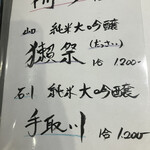 山口 純米大吟醸
獺祭(だっさい) 1合 1200-
石川 純米大吟醸
手取川 1合 1200-